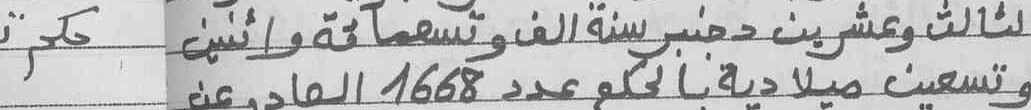 لثالث وعشرين دجنبر سنة الف وتسعمائة واثنين حكم
وتسعين ميلادية بالحكم عدد 1668 الصادر عن